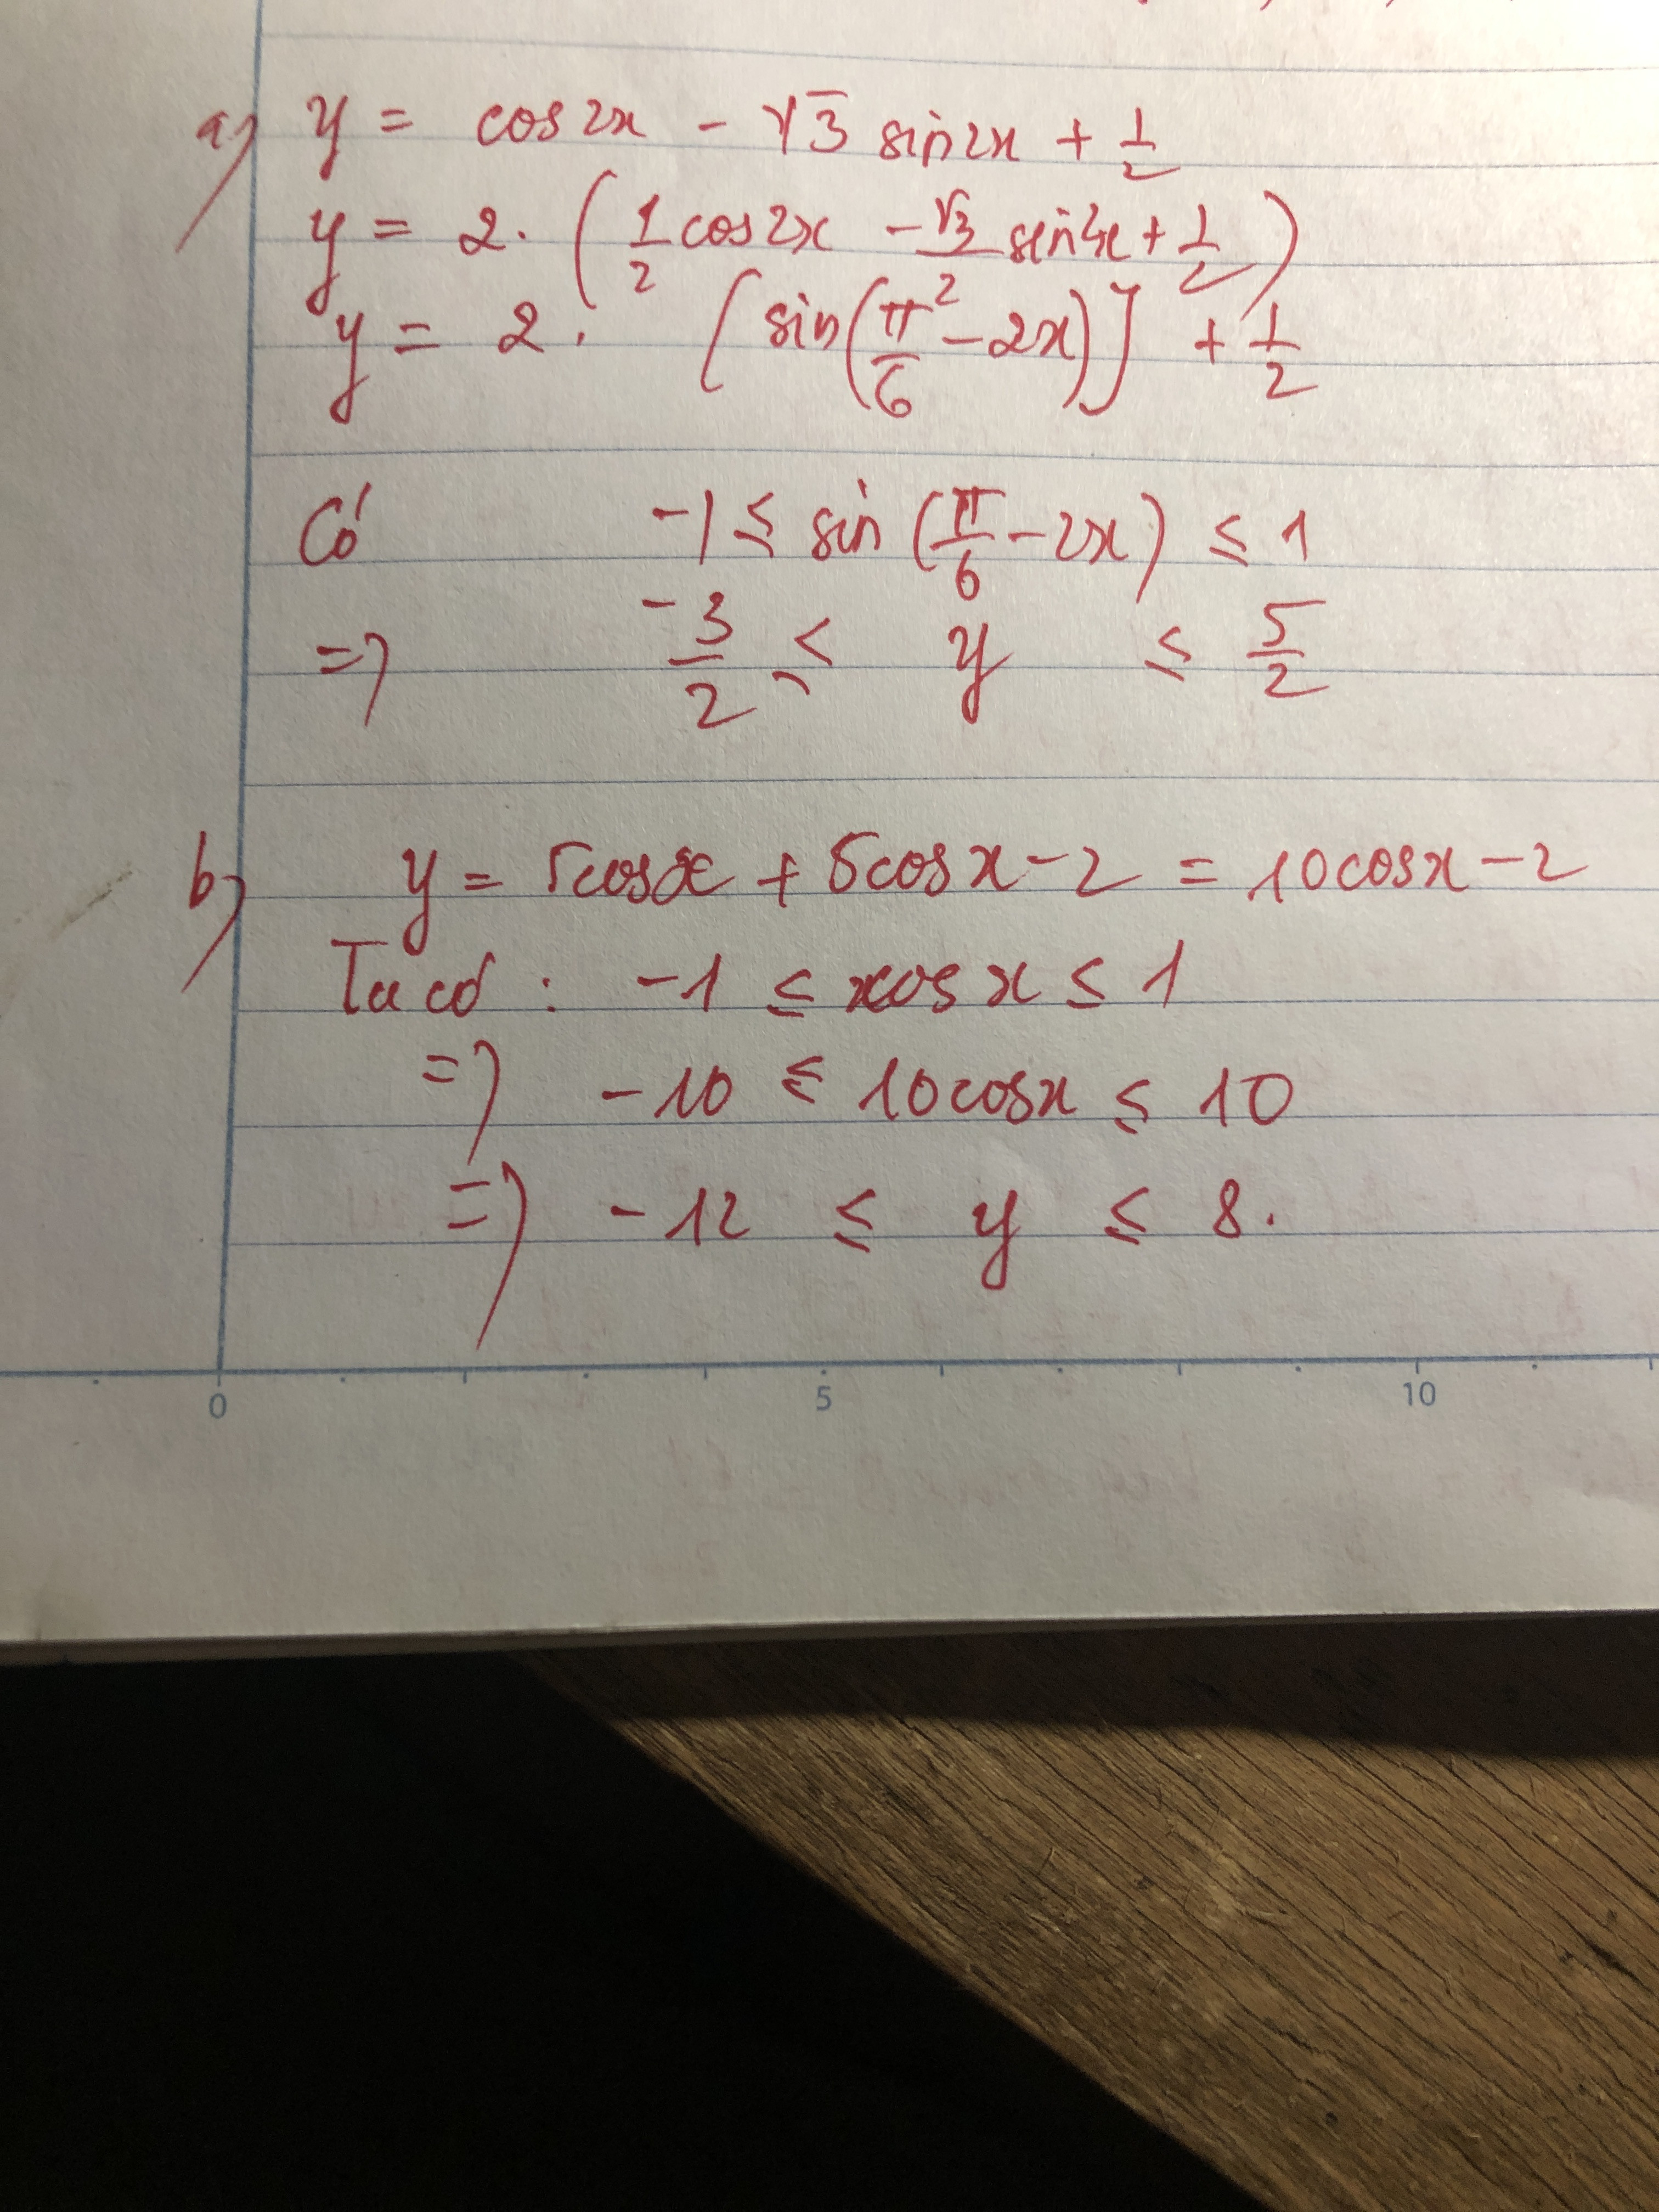 a) y = cos2x - √3 sin2x + 1/2
y = 2. (1/2 cos2x - √3/2 sin2x + 1/2)
y = 2. [sin(π/6 - 2x)] + 1/2
Có -1 ≤ sin(π/6 - 2x) ≤ 1
=> -3/2 ≤ y ≤ 5/2
b) y = 5cosx + 5cosx - 2 = 10cosx - 2
Ta có: -1 ≤ cosx ≤ 1
=> -10 ≤ 10cosx ≤ 10
=> -12 ≤ y ≤ 8.
0 5 10